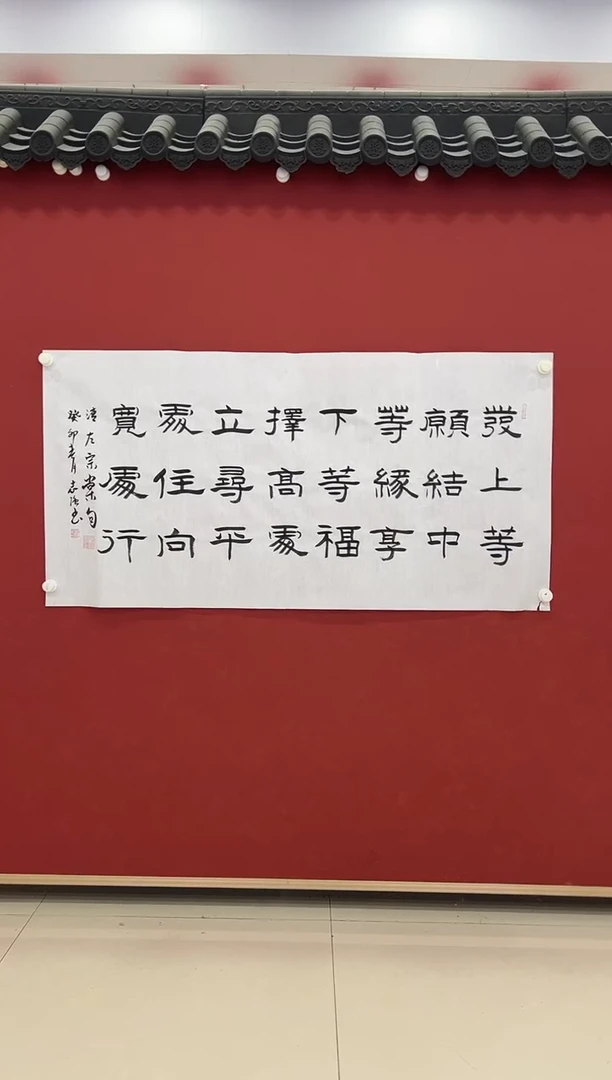 發上等
願結中
等緣享
下等福
擇高處
立尋平
處住向
寬處行
清左宗棠句
癸卯春月